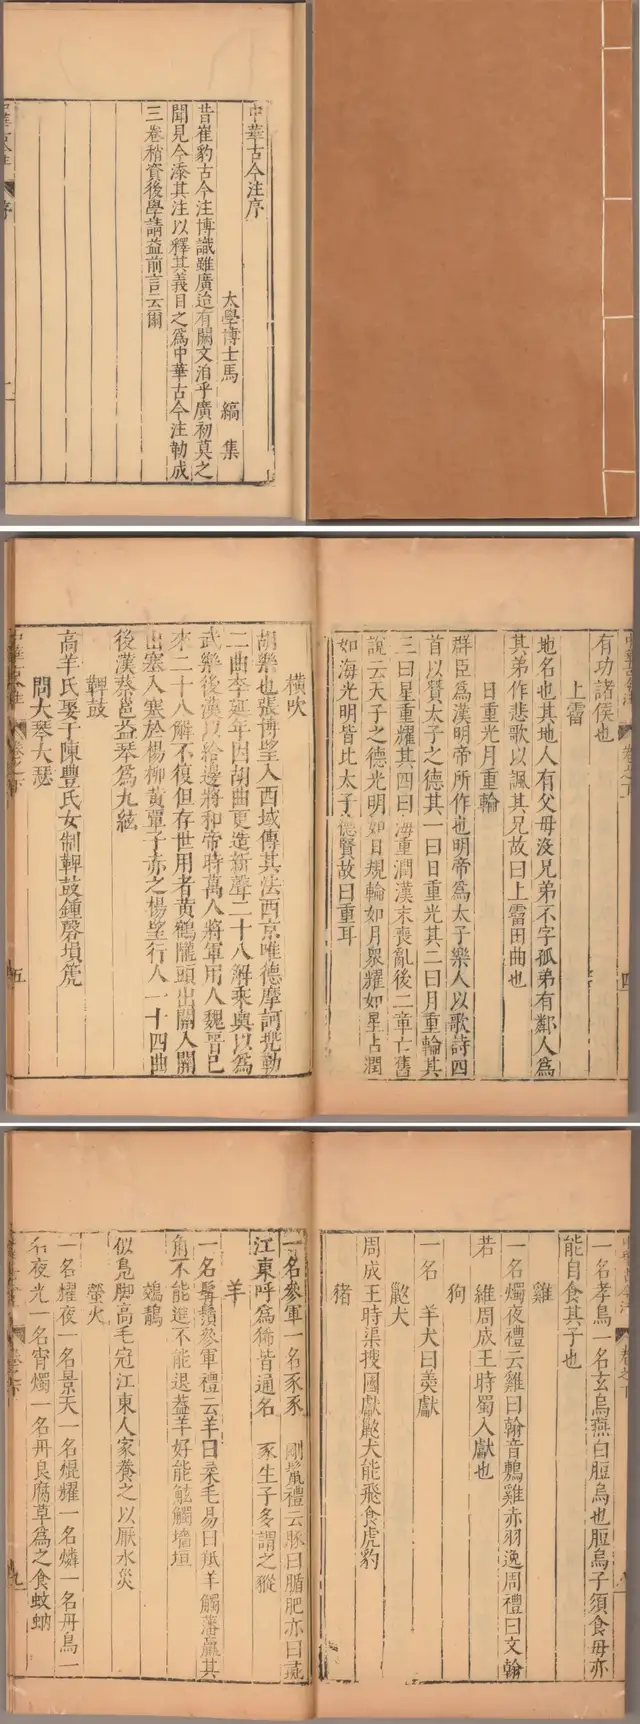 中華古今注序
太學博士馬縞集
昔崔豹古今注博識雖廣迨有闕文洎乎廣初莫之
聞見今添其注以釋其義目之為中華古今注勒成
三卷稍資後學請益前言云爾
序
有功諸侯也
上霤
地名也其地人有父母沒兄弟不字孤弟有鄰人為
其弟作悲歌以諷其兄故曰上霤田曲也
日重光月重輪
群臣為漢明帝所作也明帝為太子樂人以歌詩四
首以贊太子之德其一曰日重光其二曰月重輪其
三曰星重耀其四曰海重潤漢末喪亂後二章亡舊
說云天子之德光明如日規輪如月眾耀如星占潤
如海光明皆比太子德賢故曰重耳
四
橫吹
胡樂也張博望入西域傳其法西京唯德摩訶兜勒
二曲李延年因胡曲更造新聲二十八解乘輿以為
武樂後漢以給邊將和帝時萬人將軍用人魏晉已
來二十八解不復但存世用者黃鶴隴頭出關入關
出塞入塞於楊柳黃覃子赤之楊望行人一十四曲
後漢蔡邕益琴為九絃
鞞鼓
高羊氏娶于陳豐氏女制鞞鼓鍾磬塤篪
問大琴大瑟
五
一名孝鳥一名玄烏燕白脰烏也脰烏子須食母亦
能自食其子也
雞
一名燭夜禮云雞曰翰音鶤雞赤羽逸周禮曰文翰
若維周成王時蜀人獻也
狗
一名羊犬曰羮獻
䶂犬
周成王時渠搜國獻䶂犬能飛食虎豹
猪
一名參軍一名豕豕剛鬣禮云豚曰腯肥亦曰彘
江東呼為狶皆通名豕生子多謂之豵
羊
一名髯鬚參軍禮云羊曰柔毛易曰羝羊觸藩羸其
角不能進不能退葢羊好能觝觸墻垣
鵁鶄
似鳧脚高毛冠江東人家養之以厭水災
螢火
一名耀夜一名景天一名熠耀一名燐一名丹鳥一
名夜光一名宵燭一名丹良腐草為之食蚊蚋
九